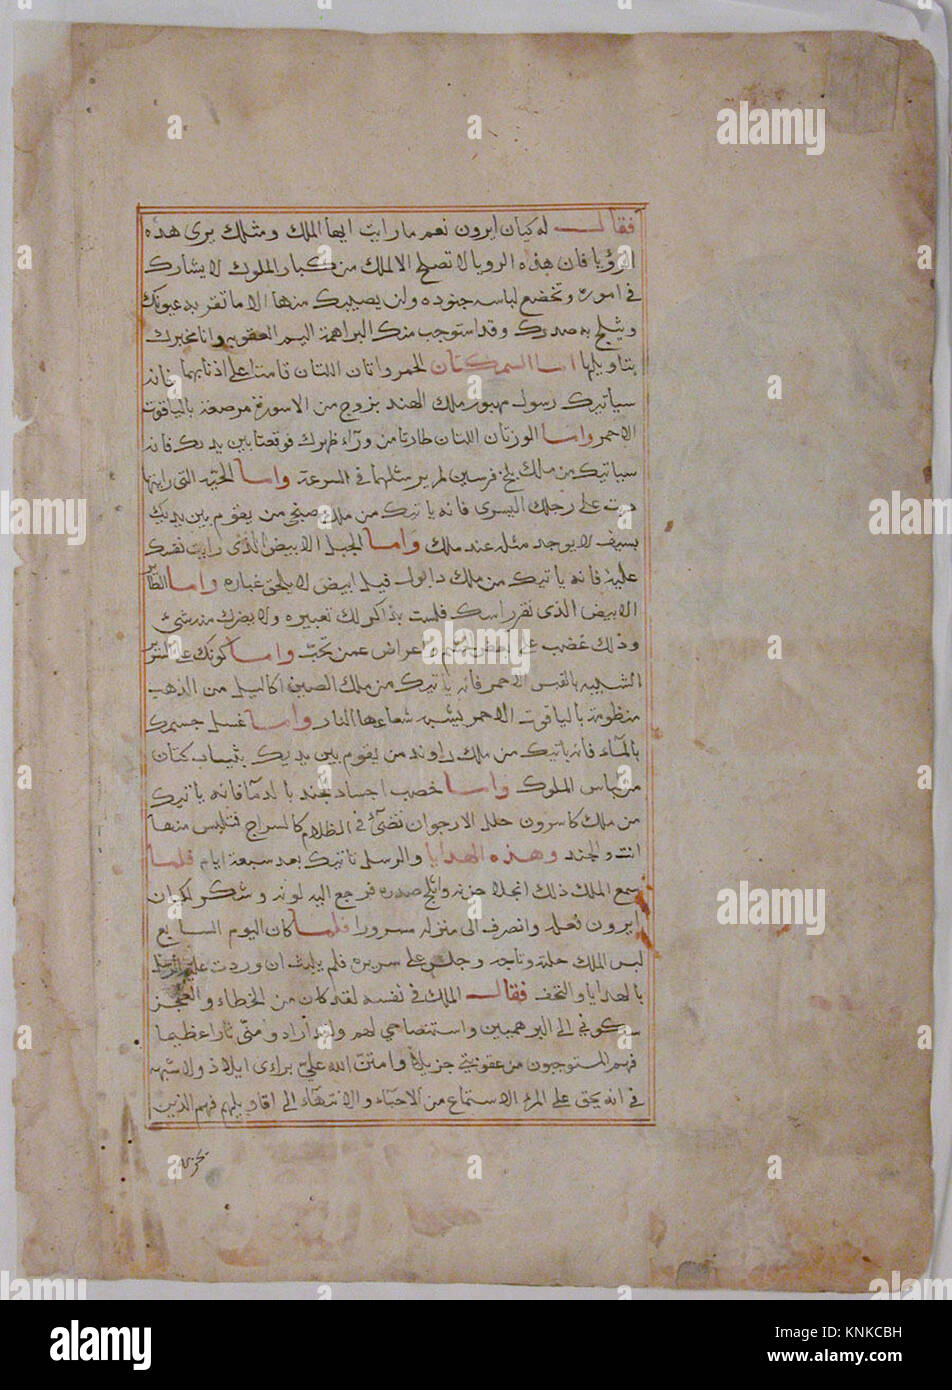 فقال له كيان ايرون نعم ما رايت ايها الملك ومثلك يرى هذه
الرؤيا فان هذه الرويا لا تصلح الا لملك من كبار الملوك لا يشارك
في اموره وتخضع لباسه جنوده ولن يصيبك منها الا ما تقر به عيونك
ويثلج به صدرك وقد استوجب منك البراهمة اليم العقوبه وانا مخبرك
بتاويلها اما السمكتان الحمراوتان اللتان قامتا على اذنابهما فانه
سياتيك رسول ملك الهند بزوج من الاسورة مرصعة بالياقوت
الاحمر واما الوزتان اللتان طارتا من ورآء ظهرك فوقعتا بين يديك فانه
سياتيك من ملك بلخ فرسين لم ير مثلهما في السرعة واما الحية التي رايتها
دبت على رجلك اليسرى فانه ياتيك من ملك من يقوم بين يديك
بسيف لا يوجد مثله عند ملك واما الجبل الابيض الذي رايت نفسك
عليه فانه ياتيك من ملك فيل ابيض لا يلحق غباره واما الطائر
الابيض الذي نقر راسك فلست بذاكر لك تعبيره ولا يضرك منه شئ
وذلك غضب على واعراض عمن تحب واما كونك على
الشبيه بالقبس الاحمر فانه ياتيك من ملك الصين اكاليل من الذهب
منظومة بالياقوت الاحمر يشبه شعاعها النار واما غسل جسمك
بالمآء فانه ياتيك من ملك راوند من يقوم بين يديك بثياب كتان
من لباس الملوك واما خضب اجساد الجند بالدما فانه ياتيك
من ملك كاسرون حلل الارجوان تضئ في الظلام كالسراج فتلبس منها
انت والجند وهذه الهدايا والرسل تاتيك بعد سبعة ايام فلما
سمع الملك ذلك انجلا حزنه واثلج صدره فرجع اليه لونه وشكر لكيان
ايرون فعله وانصرف الى منزله سرورا فلما كان اليوم السابع
لبس الملك حلته وتاجه وجلس على سريره فلم يلبث ان وردت عليه الرسل
بالهدايا والتحف فقال الملك في نفسه لقد كان من الخطاء والعجز
سكوني الى البرهميين واستنصاحي لهم ولقد ارادو مني ثارا عظيما
فهم المستوجبون من عقوبتي جزيلا وامتن الله علي براي ايلاذ ولا شبهه
في انه يحق على المرء الاستماع من الاحباء والانتهاء الى اقاويلهم فهم الذين
alamy
Image ID: KNKCBH
www.alamy.com